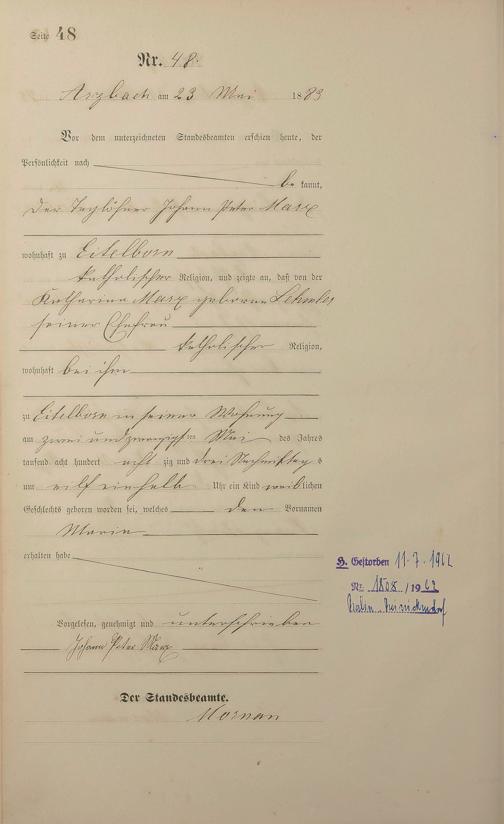 Seite 48
Nr. 48.
Arzbach am 23 Mai 1883
Vor dem unterzeichneten Standesbeamten erschien heute, der
Persönlichkeit nach
be kannt,
der Taglöhner Johann Peter Marx
wohnhaft zu Eitelborn
katholischer Religion, und zeigte an, daß von der
Katharina Marx geborene
seiner Ehefrau
katholischer Religion,
wohnhaft bei ihm
zu Eitelborn in seiner Wohnung
am zwei und zwanzigsten Mai des Jahres
tausend acht hundert acht zig und drei Nachmittags
um eilf einhalb Uhr ein Kind weiblichen
Geschlechts geboren worden sei, welches den Vornamen
Maria
erhalten habe
H. Gestorben 11.7.1962
Nr. /1962
Berlin-Reinickendorf
Vorgelesen, genehmigt und unterschrieben
Johann Peter Marx
Der Standesbeamte.